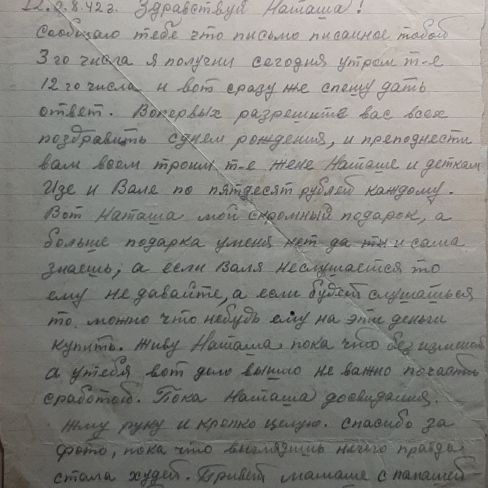 12.8.42г. Здравствуй Наташа!
Сообщаю тебе что письмо писанное тобой
3го числа я получил сегодня утром т-е
12го числа и вот сразу же спешу дать
ответ. Вопервых разрешите вас всех
поздравить сднем рождения, и преподнести
вам всем троим т-е жене Наташе и деткам
Изе и Вале по пятдесят рублей каждому.
Вот Наташа мой скромный подарок, а
больше подарка уменя нет да ты и сама
знаешь, а если Валя неслушается то
ему не давайте, а если будет слушаться
то можно что нибудь ему на эти деньги
купить. Живу Наташа пока что без изменен
а утебя вот дело вышло не важно почасти
сработой. Пока Наташа досвидания.
Жму руку и крепко целую. спасибо за
фото, пока что выглядишь ничего правда
стала худей. Привет мамаше с папашей